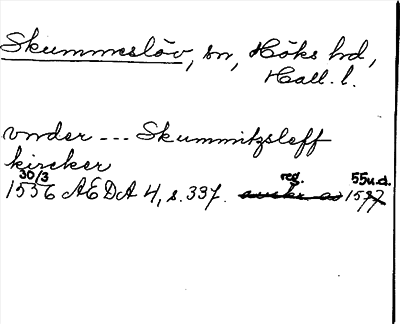 Skummeslöv, sn, Höks hd,
Hall. l.
vnder --- Skummitzleff
kircker
30/3 reg. 55u.d.
1536 AEDA 4, s. 337. avskr. av 1537